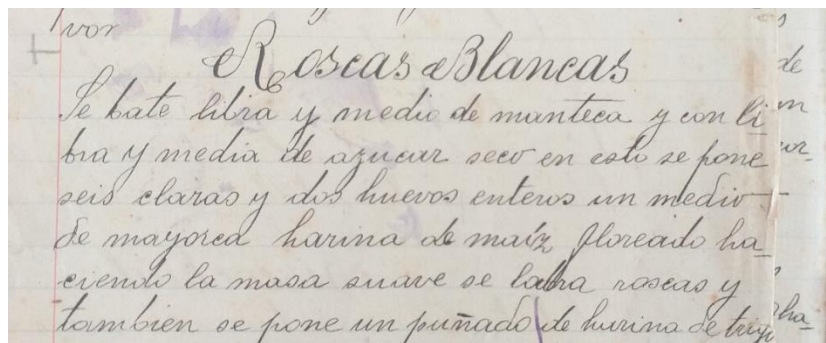 vor
Roscas Blancas
Se bate libra y medio de manteca y con li
bra y media de azucar seco en esto se pone
seis claras y dos huevos enteros un medio
de mayorca harina de maíz floreado ha_
ciendo la masa suave se labra roscas y
tambien se pone un puñado de hurina de trigo
de
ha_